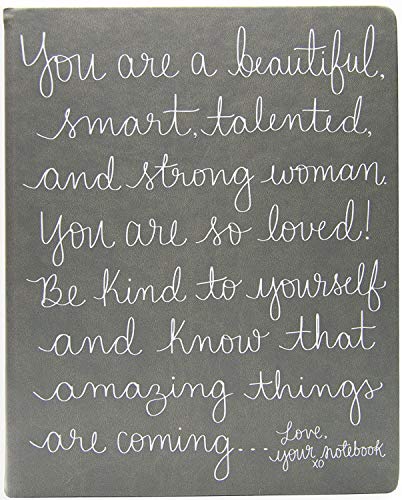 You are a beautiful,
smart, talented,
and strong woman.
You are so loved!
Be kind to yourself
and know that
amazing things
are coming...
Love,
your notebook
xo